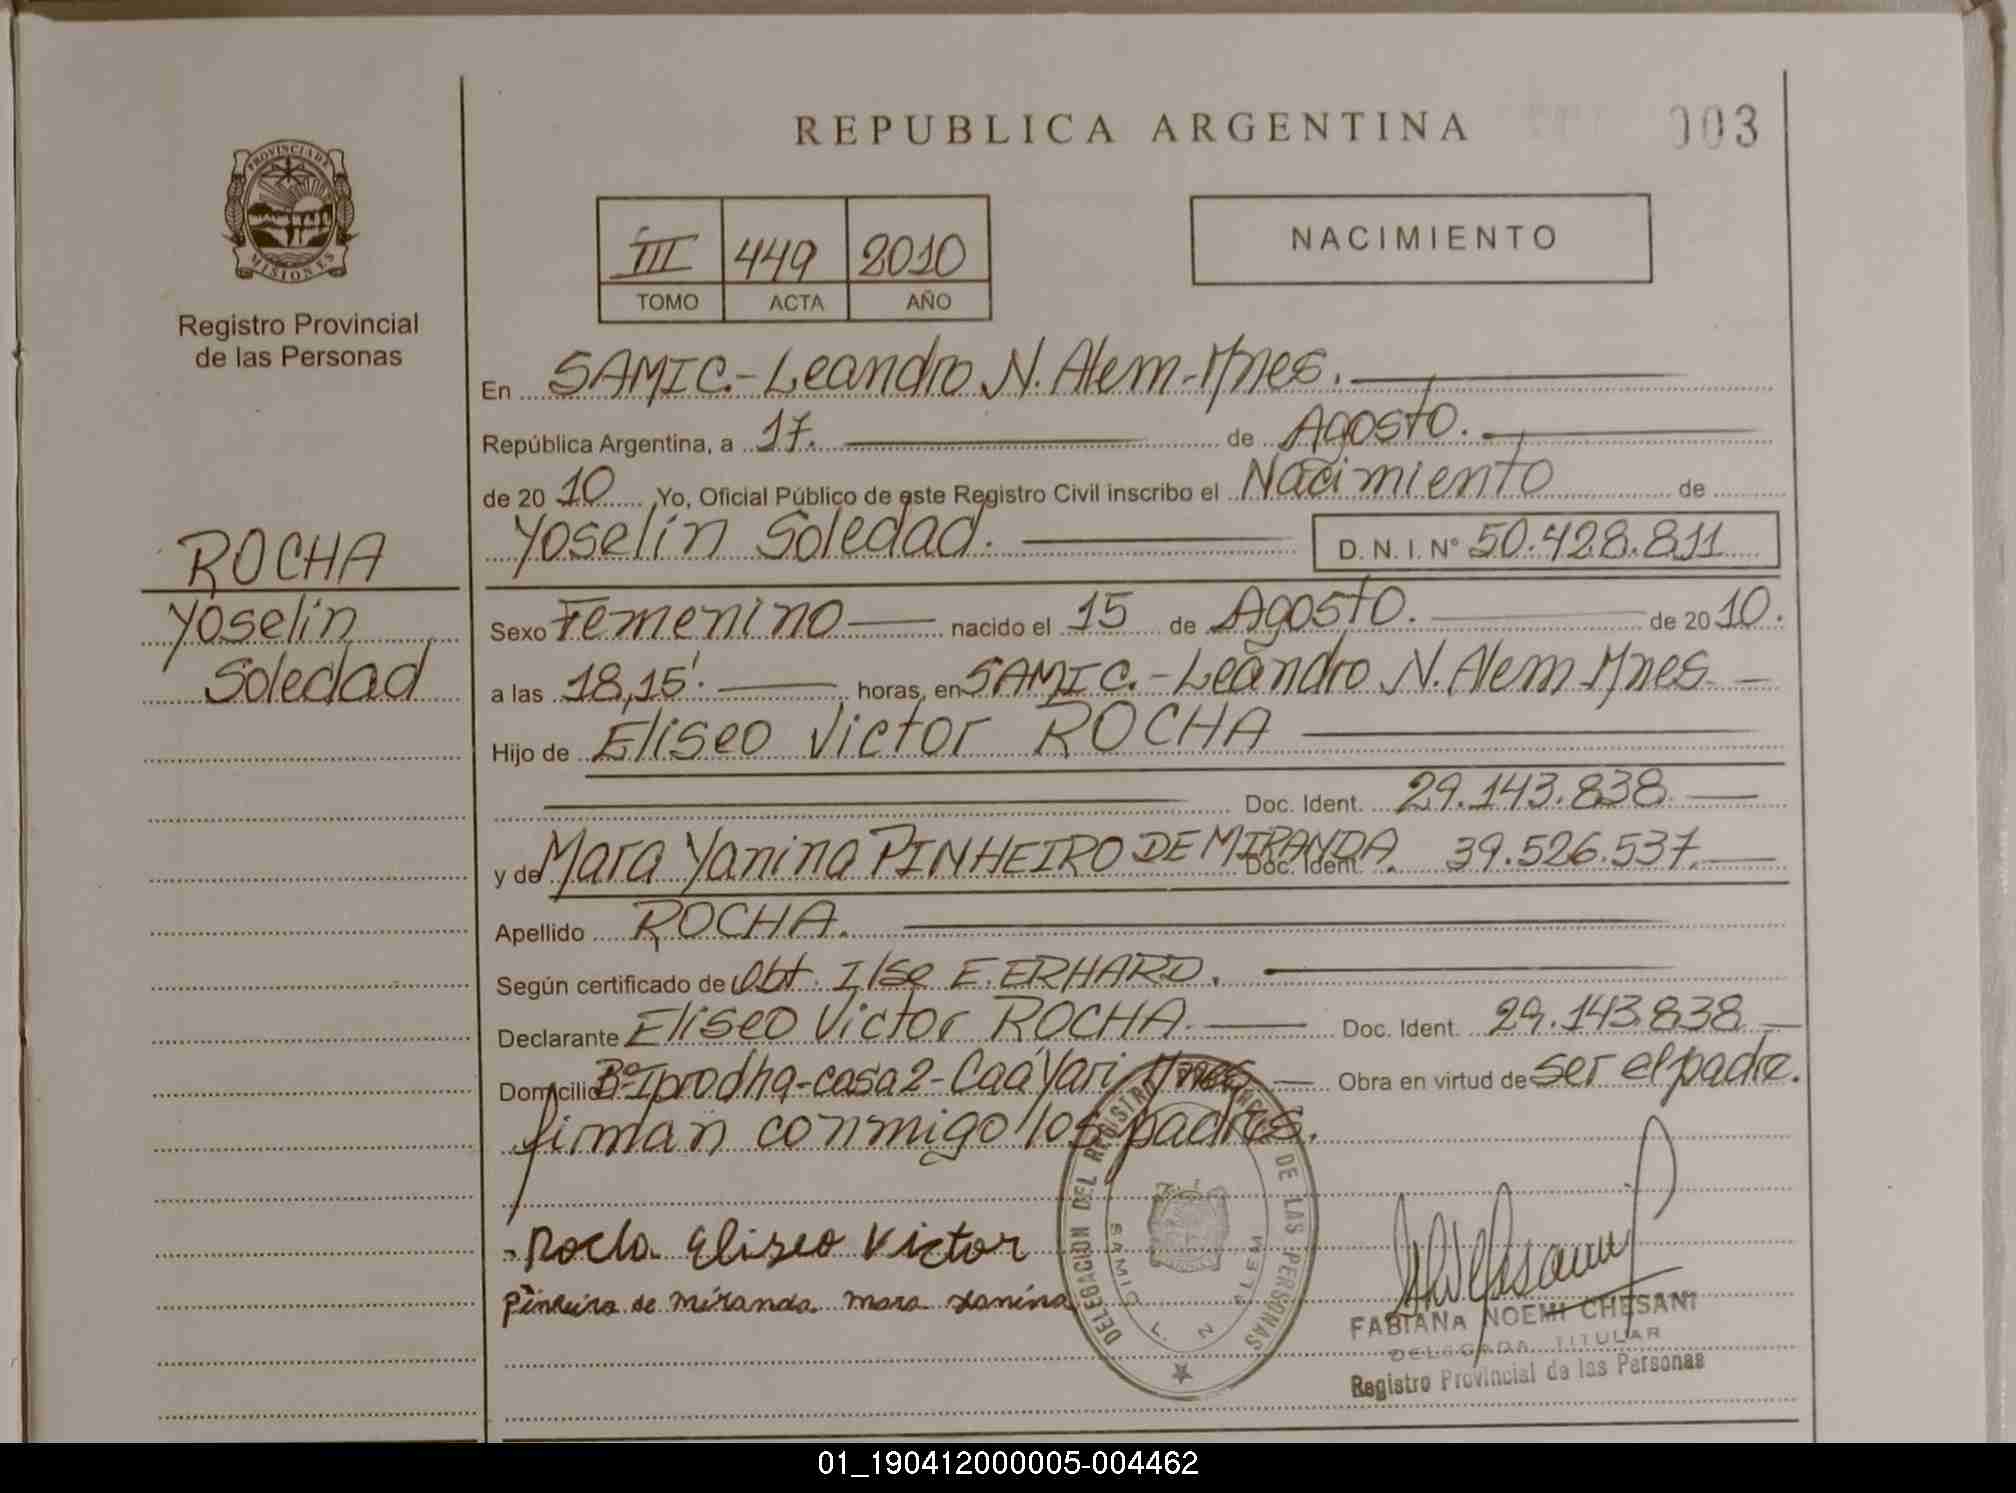 REPUBLICA ARGENTINA
003
PROVINCIA DE
MISIONES
Registro Provincial
de las Personas
III 449 2010
TOMO ACTA AÑO
NACIMIENTO
En SAMIC.-Leandro N. Alem-Mnes.
República Argentina, a 17. de Agosto.
de 20 10 Yo, Oficial Público de este Registro Civil inscribo el Nacimiento de
Yoselin Soledad. D. N. I. Nº 50.428.811
ROCHA
Yoselin
Soledad
Sexo Femenino nacido el 15 de Agosto. de 20 10.
a las 18,15'. horas, en SAMIC.-Leandro N. Alem Mnes.
Hijo de Eliseo Victor ROCHA
Doc. Ident. 29.143.838
y de Mara Yanina PINHEIRO DE MIRANDA. Doc. Ident. 39.526.537.
Apellido ROCHA.
Según certificado de Obt. Ilse E. ERHARD.
Declarante Eliseo Victor ROCHA. Doc. Ident. 29.143.838
Domicilio Bº Iprodha-casa 2-Caá Yari Mnes Obra en virtud de ser el padre.
firman conmigo los padres.
Rocha Eliseo Victor
Pinheiro de Miranda Mara Yanina
DELEGACION DEL REGISTRO DE LAS PERSONAS
SAMIC L. N ALEM
FABIANA NOEMI CHESANI
DELEGADA TITULAR
Registro Provincial de las Personas
01_190412000005-004462